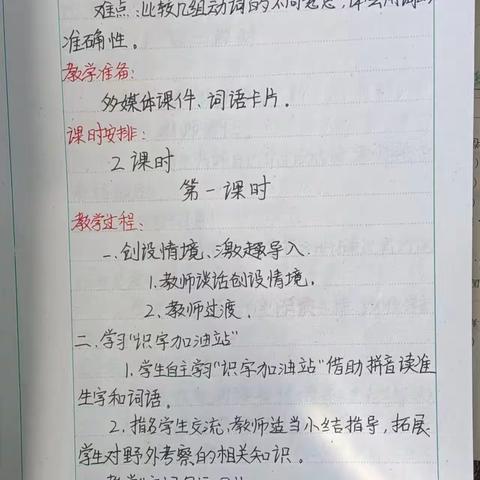 难点：比较几组动词的不同意思，体会用词的
准确性。
教学准备：
多媒体课件、词语卡片.
课时安排：
2课时
第一课时
教学过程：
一、创设情境、激趣导入.
1.教师谈话创设情境.
2.教师过渡.
二、学习"识字加油站"
1.学生自主学习"识字加油站"借助拼音读准
生字和词语.
2.指名学生交流,教师适当小结指导,拓展
学生对野外考察的相关知识.